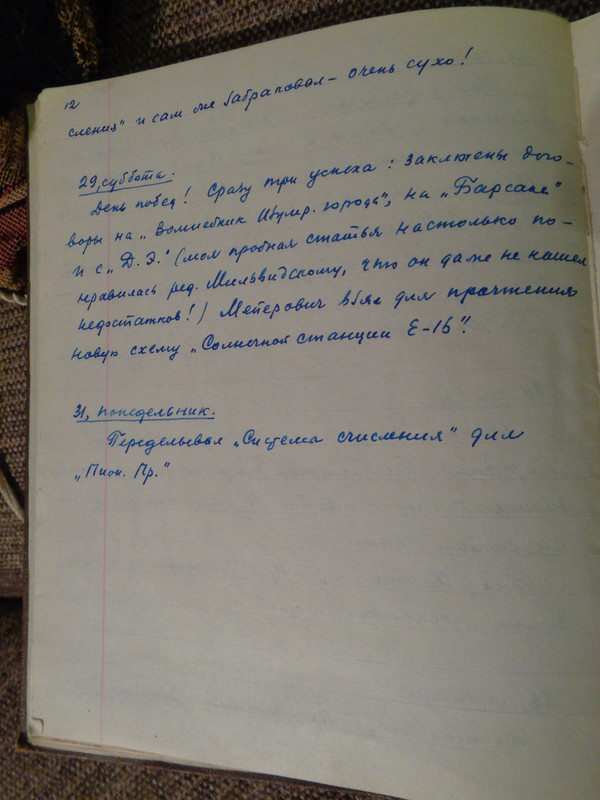 12
сления" и сам же забраковал – очень сухо!
29, суббота.
День побед! Сразу три успеха: заключены дого-
воры на „Волшебник Изумр. города", на „Барсаке"
и с „Д. Э." (моя пробная статья настолько по-
нравилась ред. Мильвидскому, что он даже не нашел
недостатков!) Мейерович взял для прочтения
новую схему „Солнечной станции Е-16".
31, понедельник.
Переделывал „Системы счисления" для
„Пион. Пр."